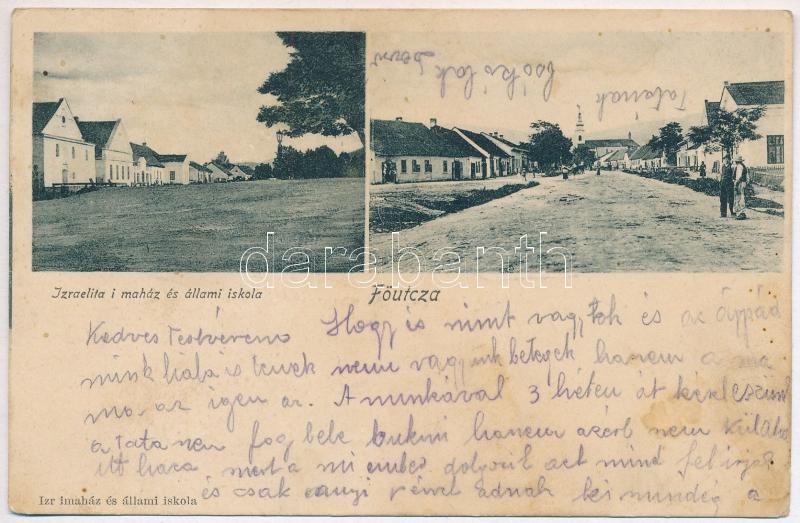 Tatának
sok csók
darabanth
Izraelita i maház és állami iskola
Főutcza
Kedves Testvérem Hogy is mint vagytok és az Árpád
mink hála is tenek nem vagyunk betegek hanem a ma
ma az igen az. A munkával 3 héten át
a Tata nem fog bele bukni hanem azért nem
itt haza mert a mi ember dolgozik azt mind fel írja
és csak annyi pénzt adnak ki mindég a
Izr imaház és állami iskola